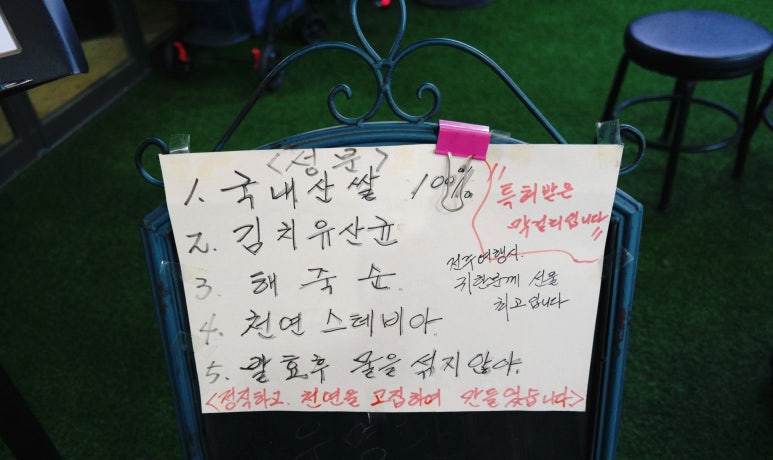 <성분>
1. 국내산 쌀 100%
"특허받은
막걸리입니다"
2. 김치유산균
3. 해죽순
전주여행시
귀한분께 선물
최고입니다
4. 천연 스테비아
5. 발효후 물을 섞지않아.
<정직하고. 천연을 고집하여 만들었습니다>